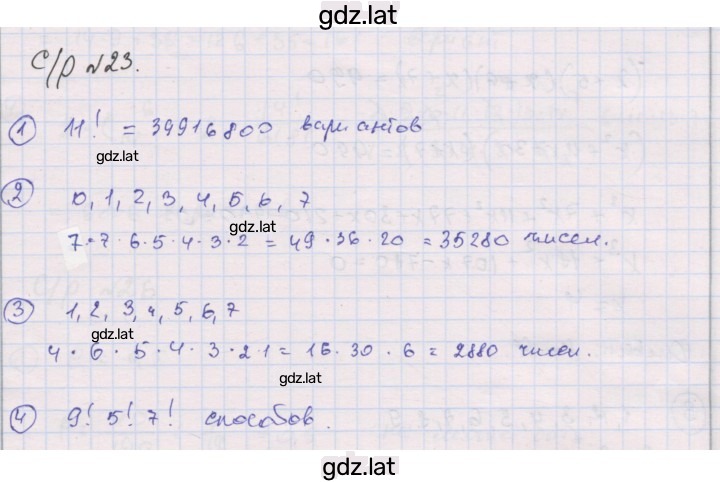 gdz.lat
С/р №23.
1 11! = 39916800 вариантов
gdz.lat
2 0, 1, 2, 3, 4, 5, 6, 7
gdz.lat
7·7·6·5·4·3·2 = 49·36·20 = 35280 чисел.
3 1, 2, 3, 4, 5, 6, 7
gdz.lat
4·6·5·4·3·2·1 = 16·30·6 = 2880 чисел.
gdz.lat
4 9! 5! 7! способов.
gdz.lat